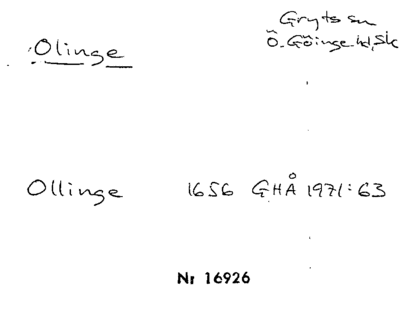 Olinge
Gryts sn
Ö. Göinge hd, Sk
Ollinge 1656 GHÅ 1971:63
Nr 16926